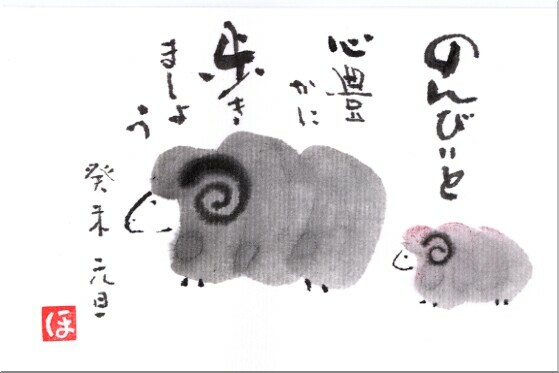 のんびりと
心豊
かに
歩き
ましょ
う
癸未 元旦
ほ